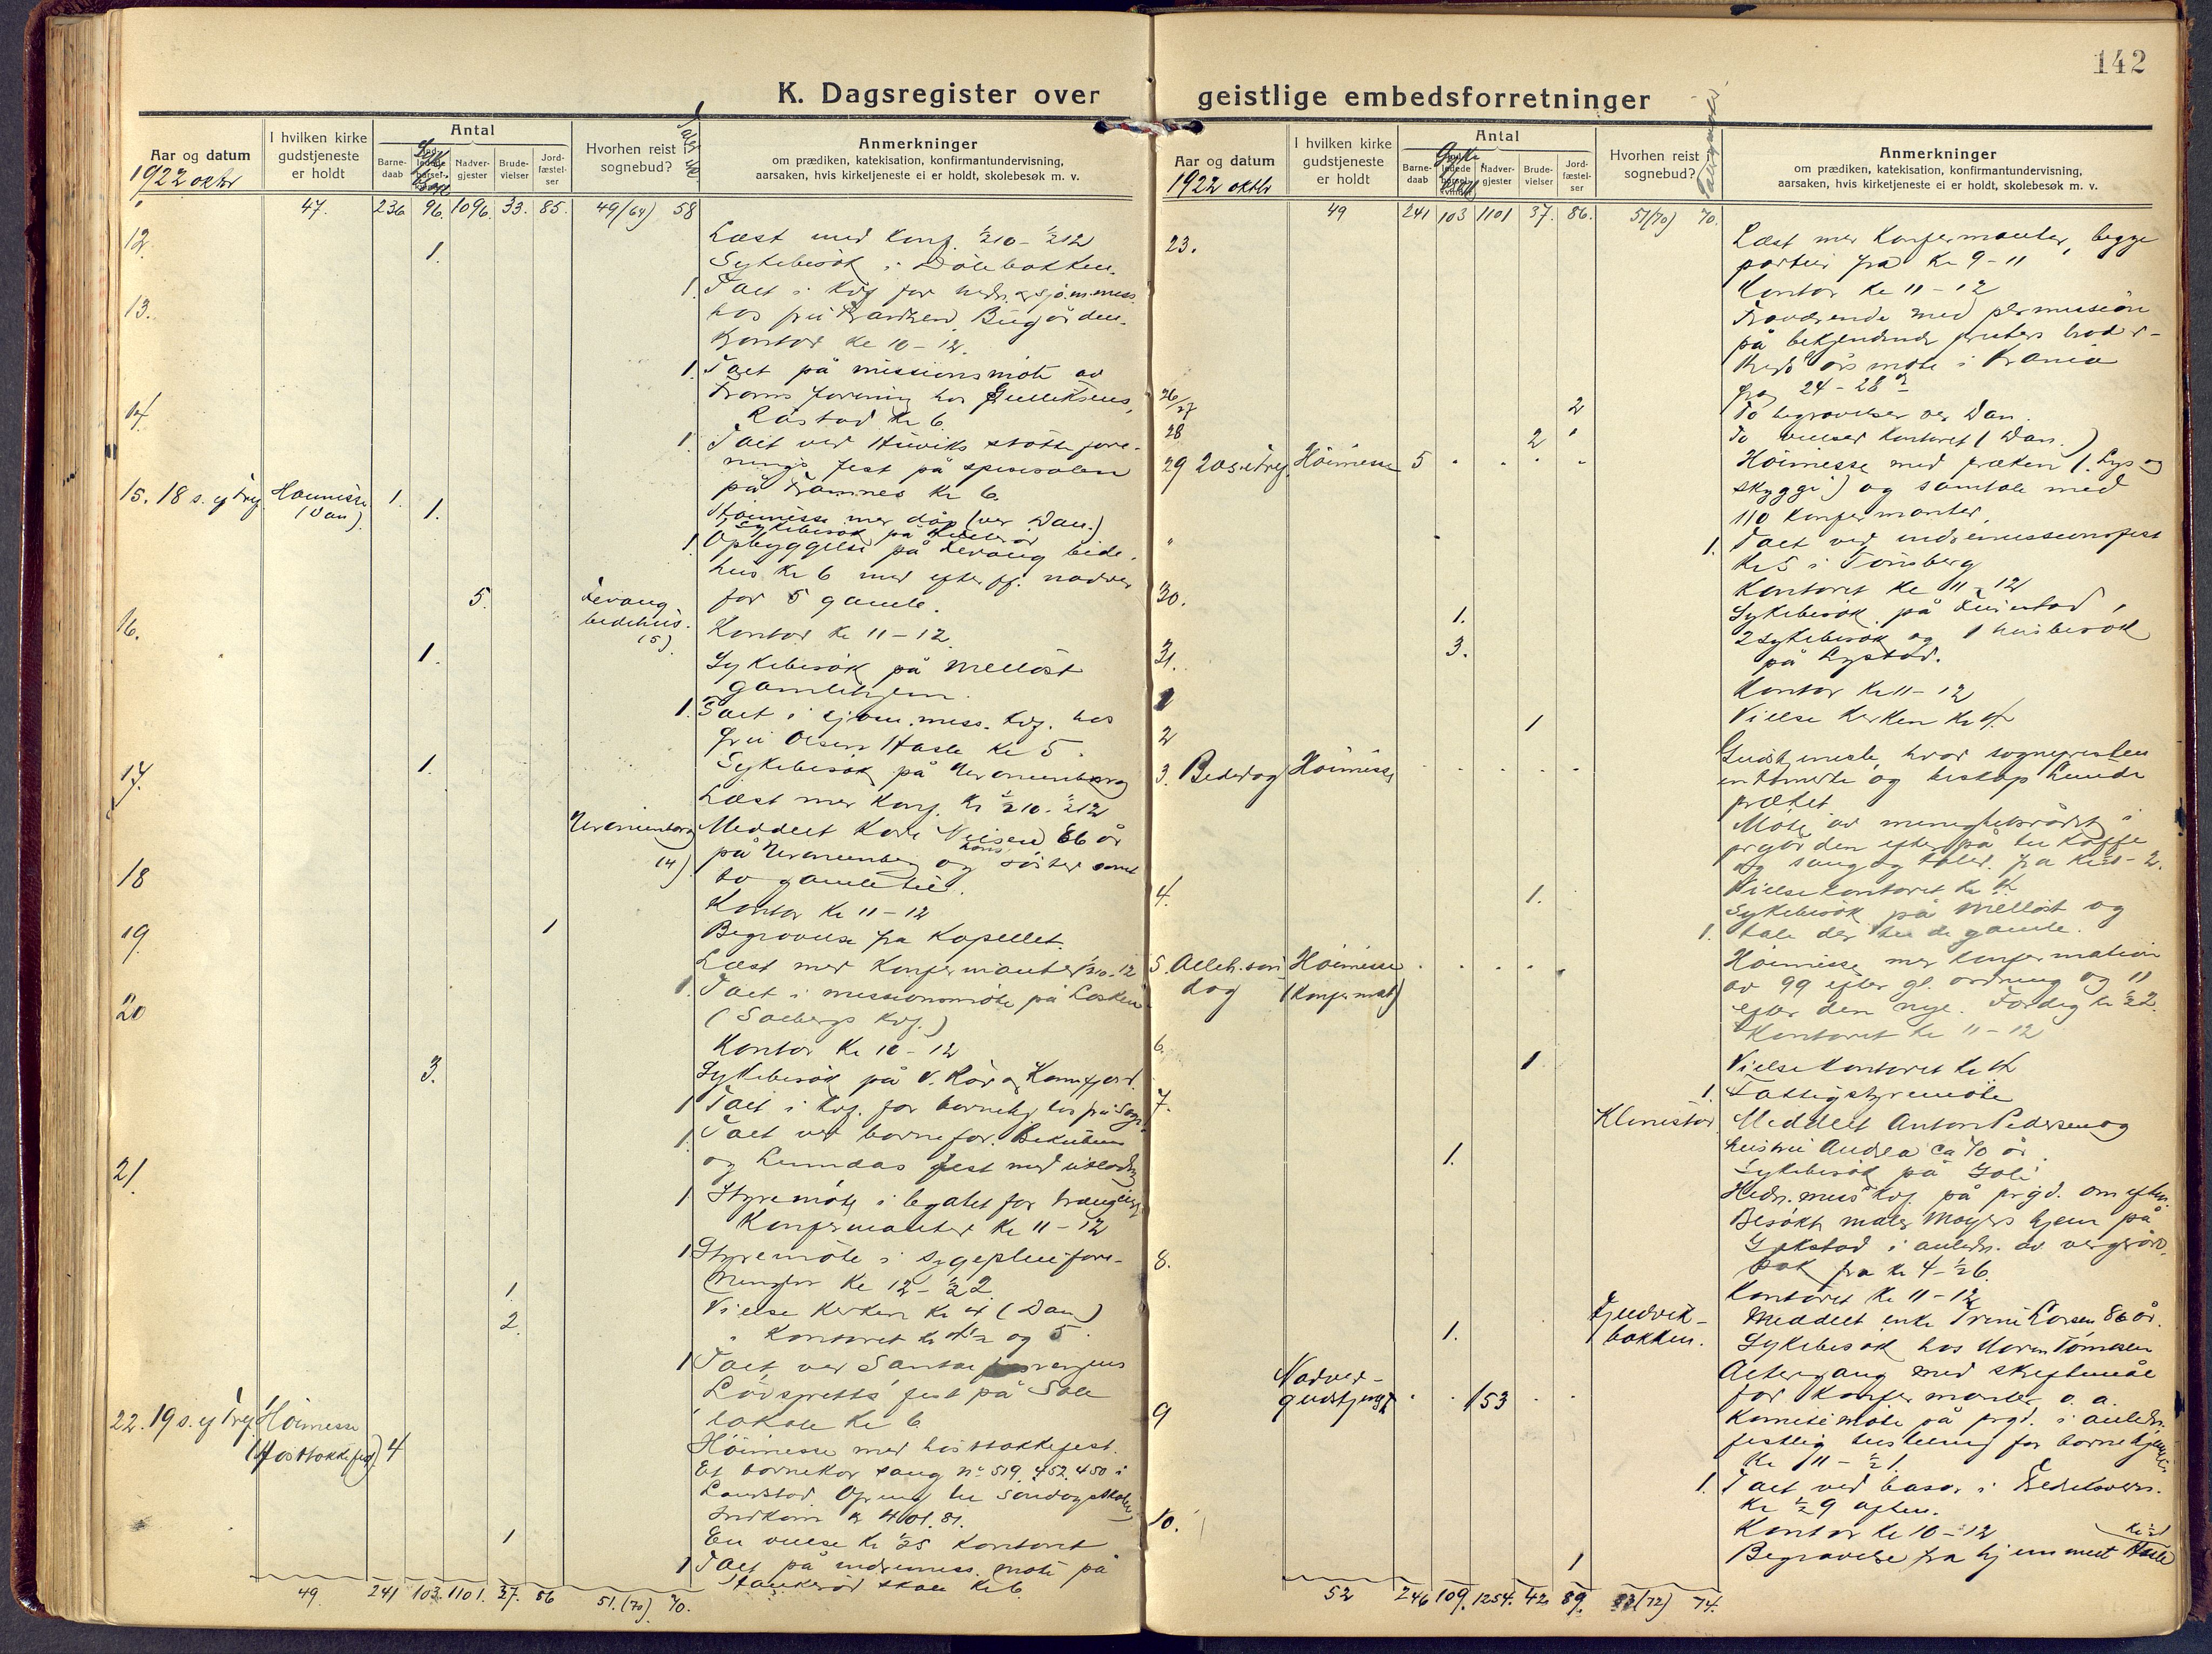 142
K. Dagsregister over geistlige embedsforretninger
Aar og datum
1922 oktbr
I hvilken kirke
gudstjeneste
er holdt
Antal
Barne-
daab
Syke
besøk
Nadver-
gjester
Brude-
vielser
Jord-
fæstel-
ser
Hvorhen reist i
sognebud?
Anmerkninger
om prædiken, katekisation, konfirmantundervisning,
aarsaken, hvis kirketjeneste ei er holdt, skolebesøk m. v.
47. 236 96. 1096. 33. 85. 49/(64) 58
12. Læst med konf. ½10 - ½12
1. Sykebesøk i Dölebakken.
1. Talt i kvf for hedn. og sjöm.miss.
13. hos fru Bugården.
Kontor kl 10 - 12.
1. Talt på missionsmöte av
Frams forening hos Gulliksens,
14. Råstad kl 6.
1. Talt ved Huviks stötte fore-
nings fest på spisesalen
på Framnes kl 6.
15. 18 s. e. Tref. Höimisse (Dan). 1. Höimisse med dåp (ved Dan.)
1. Sykebesøk på
1. Opbyggelse på Fevang bede-
hus kl 6 med efterff. nadver
5. Fevang
bedehus. (5) for 5 gamle.
16. Kontor kl 11 - 12.
1. Sykebesøk på Melløst
gamlehjem.
1. Talt i sjöm. miss. kvf. hos
fru Olsen Hasle kl 5.
17. 1. Sykebesøk på Uranienborg
Læst med konf. kl ½10 - ½12
Uranienborg (4) Meddelt Nilsen 86 år
på Uranienborg og hans söster samt
to gamle til.
18 Kontor kl 11 - 12
19. 1 Begravelse fra Kapellet.
Læst med konfirmanter ½10-12
1. Talt i missionsmöte på
20 (Solbergs kvf.)
Kontor kl 10 - 12
3. Sykebesøk på V. Rör og Kamfjord.
1 Talt i kvf. for barnehj. hos fru
1. Talt ved barnefor.
21. og Lundås fest med utlodn.
1 Styremöte i legatet for trængende
Konfirmanter kl 11 - 12
1 Styremöte i sygepleiefore-
ningen kl 12 - ½2
1. Vielse kirken kl 4 (Dan)
2. " Kontoret kl 4½ og 5.
1 Talt ved
fest på Sole
lokale kl 6
22. 19 s. e. Tref. Höimesse
(Höstakkefest) 4 Höimesse med höstakkefest.
Et barnekor sang nr 519, 452, 450 i
Landstad. Ofring til söndagsskolen
Indkom kr 401.81.
1 En vielse kl ½5 kontoret
1 Talt på indremiss. möte på
Haukeröd skole kl 6
49 241 103. 1101. 37. 86 51. (70). 70.
Aar og datum
1922 oktbr
I hvilken kirke
gudstjeneste
er holdt
Antal
Barne-
daab
Syke
besøk
Nadver-
gjester
Brude-
vielser
Jord-
fæstel-
ser
Hvorhen reist i
sognebud?
Anmerkninger
om prædiken, katekisation, konfirmantundervisning,
aarsaken, hvis kirketjeneste ei er holdt, skolebesøk m. v.
49 241 103 1101 37. 86. 51/(70) 70.
23. Læst med konfirmanter, begge
partier fra kl 9 - 11
Kontor kl 11 - 12
Fraværende med permission
på bekjendende presters broder-
kreds' årsmöte i Krania
fra 24 - 28
26/27 2 To begravelser ved Dan.
28 2 To vielser kontoret (Dan.)
29 20 s. e. Tref. Höimesse 5 Höimesse med præken (Lys og
skygge) og samtale med
110 konfirmanter.
1. Talt ved indremissionsfest
kl 5 i Tönsberg
30. Kontoret kl 11 - 12
1. Sykebesøk på
31. 3. 2 sykebesøk og 1 husbesøk
på Nystad.
1 Kontor kl 11 - 12
2 1 Vielse kirken kl 4
3. Bededag Höimesse Gudstjeneste, hvor sognepresten
intonerte og biskop Lunde
præket.
Möte av menighetsrådet i
prgården efterpå til kaffe
og sang og taler. fra kl
4. 1. Vielse kontoret kl 4
Sykebesøk på Melløst og
1. tale der til de gamle.
5. Alleh. sön-
dag Höimesse
(Konfirmat) Höimesse med konfirmation
av 99 efter gl. ordning og 11
efter den nye. Færdig kl ½2
6. Kontoret kl 11 - 12
1 Vielse kontoret kl 4
7. 1. Fattigstyremöte
Klinestad. Meddelt Anton Pedersen og
hustru Andrea ca 70 år
1. Sykebesøk på Joli
Hedn. miss kvf. på prgd. om eftm.
Besökt maler Moyers hjem på
Gokstad i anledn. av vergeråd-
8. sak fra kl 4 - ½6
Kontoret kl 11 - 12
Gjedvik-
bakken. Meddelt enke Trine Larsen 86 år.
1. Sykebesøk hos Maren Tomasen
Nadver-
gudstjenst 153
9 Altergang med skriftemål
for konfirmanter o. a.
Komitemöte på prgd. i anledn.
festlig tilstelning for barnehjemmet
kl 11 - ½1.
1. Talt ved basar i Frederiksvern.
kl ½9 aften.
10. Kontor kl 10 - 12
1 Begravelse fra hjemmet Hasle
52 246 109. 1254. 42 89. 53 (72) 74.